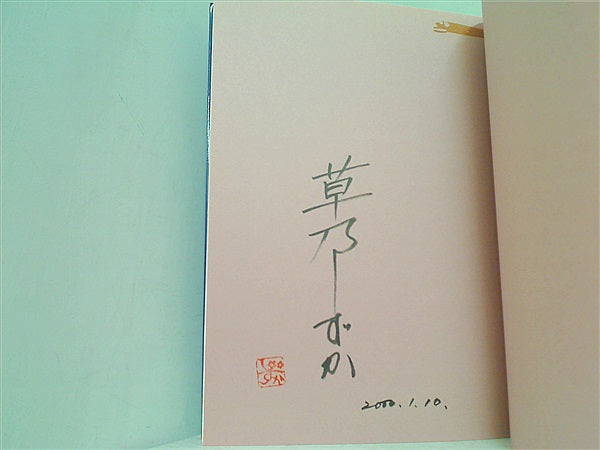 草乃しずか
2000.1.10.